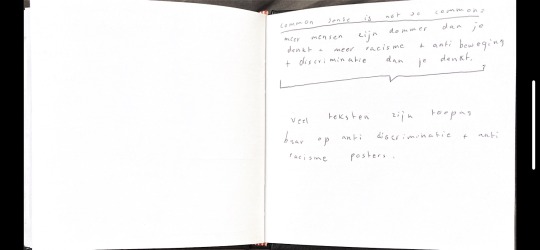 common sense is not so common
meer mensen zijn dommer dan je
denkt + meer racisme + anti beweging
+ discriminatie dan je denkt.
?
veel teksten zijn toepas
baar op anti discriminatie + anti
racisme posters.